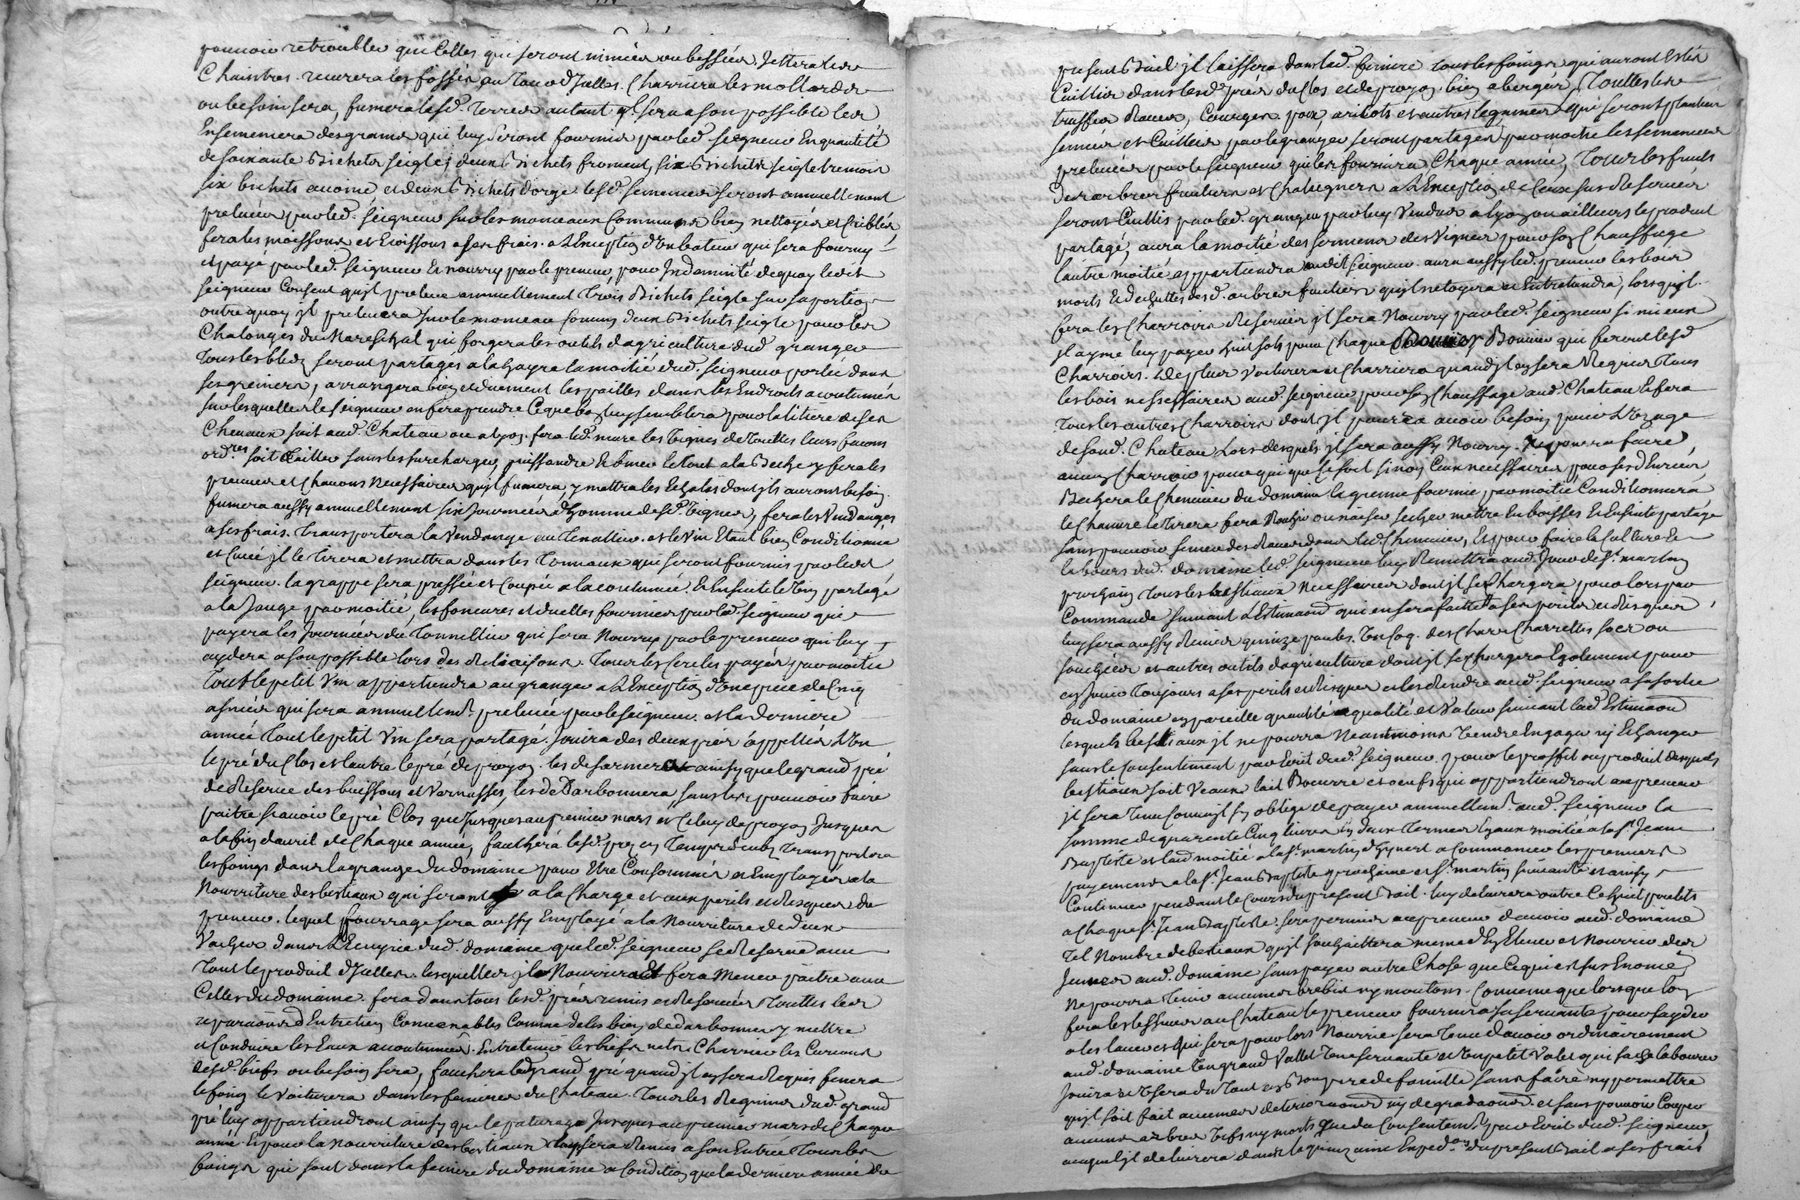 pouvoir retroubler que celles qui seront minées ou bessées, jettera les
Chaintres recurera les fossés au tour d'jcelles. Charriera les mollards
ou besoin sera, fumera lesd. terres autant qjl sera a son possible les
Ensemencera des grains qui luy seront fournis par led. seigneur En quantité
de soixante Bichets seigle, deux Bichets froment, six Bichets seigle tremois
six bichets avoine et deux Bichets d'orge lesd. semences seront annuellement
prelevées par led. seigneur sur les monceaux Communs bien nettoyés et Criblés
fera les moissons et Ecoissons a ses frais a L'Exception d'un bateur qui sera fourny
et payé par led. seigneur Et nourry par le preneur, pour Indamnité de quoy ledit
seigneur Consent qu'jl preleve annuellement trois Bichets seigle sur sa portion
outre quoy jl prelevera sur le monceau Commun deux Bichets seigle pour les
Chalonges du Mareschal qui forgera les outils d'agriculture dud. granger
tous les bleds seront partages a la gayre la moitié dud. seigneur portée dans
ses greniers, arrangera bien et duement les pailles dans les Endroits acoutumés
sur lesquelles le seigneur en fera prendre Ce que bon luy semblera pour la litiere de ses
Chevaux soit aud. Chateau ou a lyon. fera led. les vignes de touttes leurs facons
ord.res soit tailler sans les surcharger, et biner le tout a la Beche y fera les
et Chavons necessaires qu'jl fumera y mettra les Echalas dont jls auront besoin
fumera aussy annuellement six journées d'homme desd. vignes, fera les vendanges
a ses frais. transportera la vendange au tinallier et le vin Etant bien Conditionné
et Cuvé jl le tirera et mettra dans les tonneaux qui seront fournis par led.
seigneur. la grappe sera pressée et Coupée a la coutumée et Ensuite le tout partagé
a la Jauge par moitié, les fonçures et douelles fournies par led. seigneur qui
payera les journées du tonnellier qui sera nourry par le preneur qui luy
aydera a son possible lors des reliaisons. tous les Cercles payés par moitié
tout le petit vin appartiendra au granger a L'Exception d'une piece de Cinq
asnées qui sera annuellem.t prelevée par le seigneur. et la derniere
année tout le petit vin sera partagé. jouira des deux prés appellés L'un
le pré du Clos et l'autre le pré de proyon. les desarmera ainsy que le grand pré
de Reserve des buissons et varnasses, les de Darbonnera sans les pouvoir faire
paitre sçavoir le pré Clos que jusques au premier mars et Celuy de proyon jusques
a la fin d'avril de Chaque année, fauchera lesd. prés en temps et transportera
les foings dans la grange du domaine pour Etre Consommés et Employés a la
nourriture des bestiaux qui seront a la Charge et aux perils et Risques du
preneur. lequel fourrage sera aussy Employé a la nourriture de deux
vaches dans L'Ecuyrie dud. domaine que led. seigneur se Reserve avec
tout le produit d'jcelles. lesquelles jl nourrira et fera mener paitre avec
Celles du domaine. fera dans tous lesd. prés remis et Reservés touttes les
reparations d'Entretien Convenables Comme de les bien dedarbonner y mettre
et Conduire les Eaux acoutumées. Entretenir les biefs nets. Charrier les Curons
desd. biefs ou besoin sera, fauchera led. grand pré quand jl en sera Requis fenera
le foing le voiturera dans les fenieres du Chateau. tous les Regains dud. grand
pré luy appartiendront ainsy que le paturage Jusques au premier mars de Chaque
année. Et pour la nourriture des bestiaux luy sera Remis a son Entrée tous les
foings qui sont dans la feniere du domaine a Condition que la derniere année du
present Bail jl laissera dans lad. feniere tous les foings qui auront Estés
Cuillis dans lesd. prés du Clos et de proyon. bien abergés, touttes les
truffes Raves, Courges, poix aricots et autres legumes qui seront plantés
semés et Cuillies par le granger seront partagés par moitié les semences
prelevées par le seigneur qui les fournira Chaque année, tous les fruits
des arbres fruitiers et Chataigners a L'Exception de Ceux sus Reservés
seront Cuillis par led. granger par luy vendus a lyon ou ailleurs le produit
partagé, aura la moitié des sermens des vignes pour son Chauffage
l'autre moitié appartiendra audit seigneur aura aussy led. preneur les bois
morts Et dechuttes desd. arbres fruitiers qu'jl netoyera et Entretiendra, lorsqu'jl
fera les Charrois Reservés jl sera nourry par led. seigneur si mieux
jl ayme luy payer huit sols pour Chaque Bouvier qui feront lesd.
Charrois. de plus voiturera et Charriera quand jl en sera Requis tous
les bois nessessaires aud. seigneur pour son Chauffage aud. Chateau et fera
tous les autres Charrois dont jl pourra avoir besoin pour L'usage
de sond. Chateau Lors desquels jl sera aussy nourry. ne pourra faire
aucun Charroir pour qui que ce soit sinon Ceux necessaires
Bechera le Chenevier du Domaine la graine fournie par moitié Conditionnera
le Chanvre le tirera fera ou naiser secher mettre en bosses Et Ensuite partagé
sans pouvoir semer des Raves dans led. Chenevier, Et pour faire la Culture Et
labours dud. domaine led. seigneur luy Remettra aud. jour de St martin
prochain tous les bestiaux necessaires dont jl se Chargera pour lors par
Commande suivant L'Estimation qui en sera faitte a ses perils et Risques,
luy sera aussy Remis quinze poules. Un Coq. des Chars Charrettes soc ou
et autres outils d'agriculture dont jl se Chargera Egalement pour
en jouir toujours a ses perils et Risques et les Rendre aud. seigneur a sa sortie
du domaine en pareille quantité qualité et valeur suivant lad. Estimation
lesquels bestiaux jl ne pourra neantmoins vendre Engager ny Echanger
sans le Consentement par Ecrit dud. seigneur. pour le proffit ou produit desquels
bestiaux soit veaux lait Beurre et oeufs qui appartiendront au preneur
jl sera tenu Comme jl s'y oblige de payer annuellem.t aud. seigneur la
somme de quarente Cinq livres En deux termes Egaux moitié a la St Jean
Baptiste et lad. moitié a la St martin d'hyvert a Commencer les premiers
payemens a la St Jean Baptiste prochaine et St martin suivante et ainsy
Continuer pendant le Cours du present Bail. luy delivrera outre Ce huit poulets
a Chaque St Jean Baptiste. sera permis au preneur d'avoir aud. domaine
Tel nombre de bestiaux qu'jl souhaittera mesme d'y Elever et nourrir des
jeunes aud. domaine sans payer autre Chose que Ce qui est sus Enoncé
ne pourra tenir aucunes brebis ny moutons. Convenu que lorsque l'on
fera les lessives au Chateau le preneur fournira sa servante pour ayder
a les laver et qui sera pour lors nourrie sera tenu d'avoir ordinairement
aud. domaine Un grand vallet Une servante et Un petit valet qui sache labourer
jouira et Usera du tout en Bon pere de famille sans faire ny permettre
qu'jl soit fait aucunes deteriorations ny degradations. et sans pouvoir Couper
aucuns arbres vifs ny morts que du Consentem.t par Ecrit dud. seigneur,
auquel jl delivrera dans la quinzaine Exped.on du present Bail a ses frais